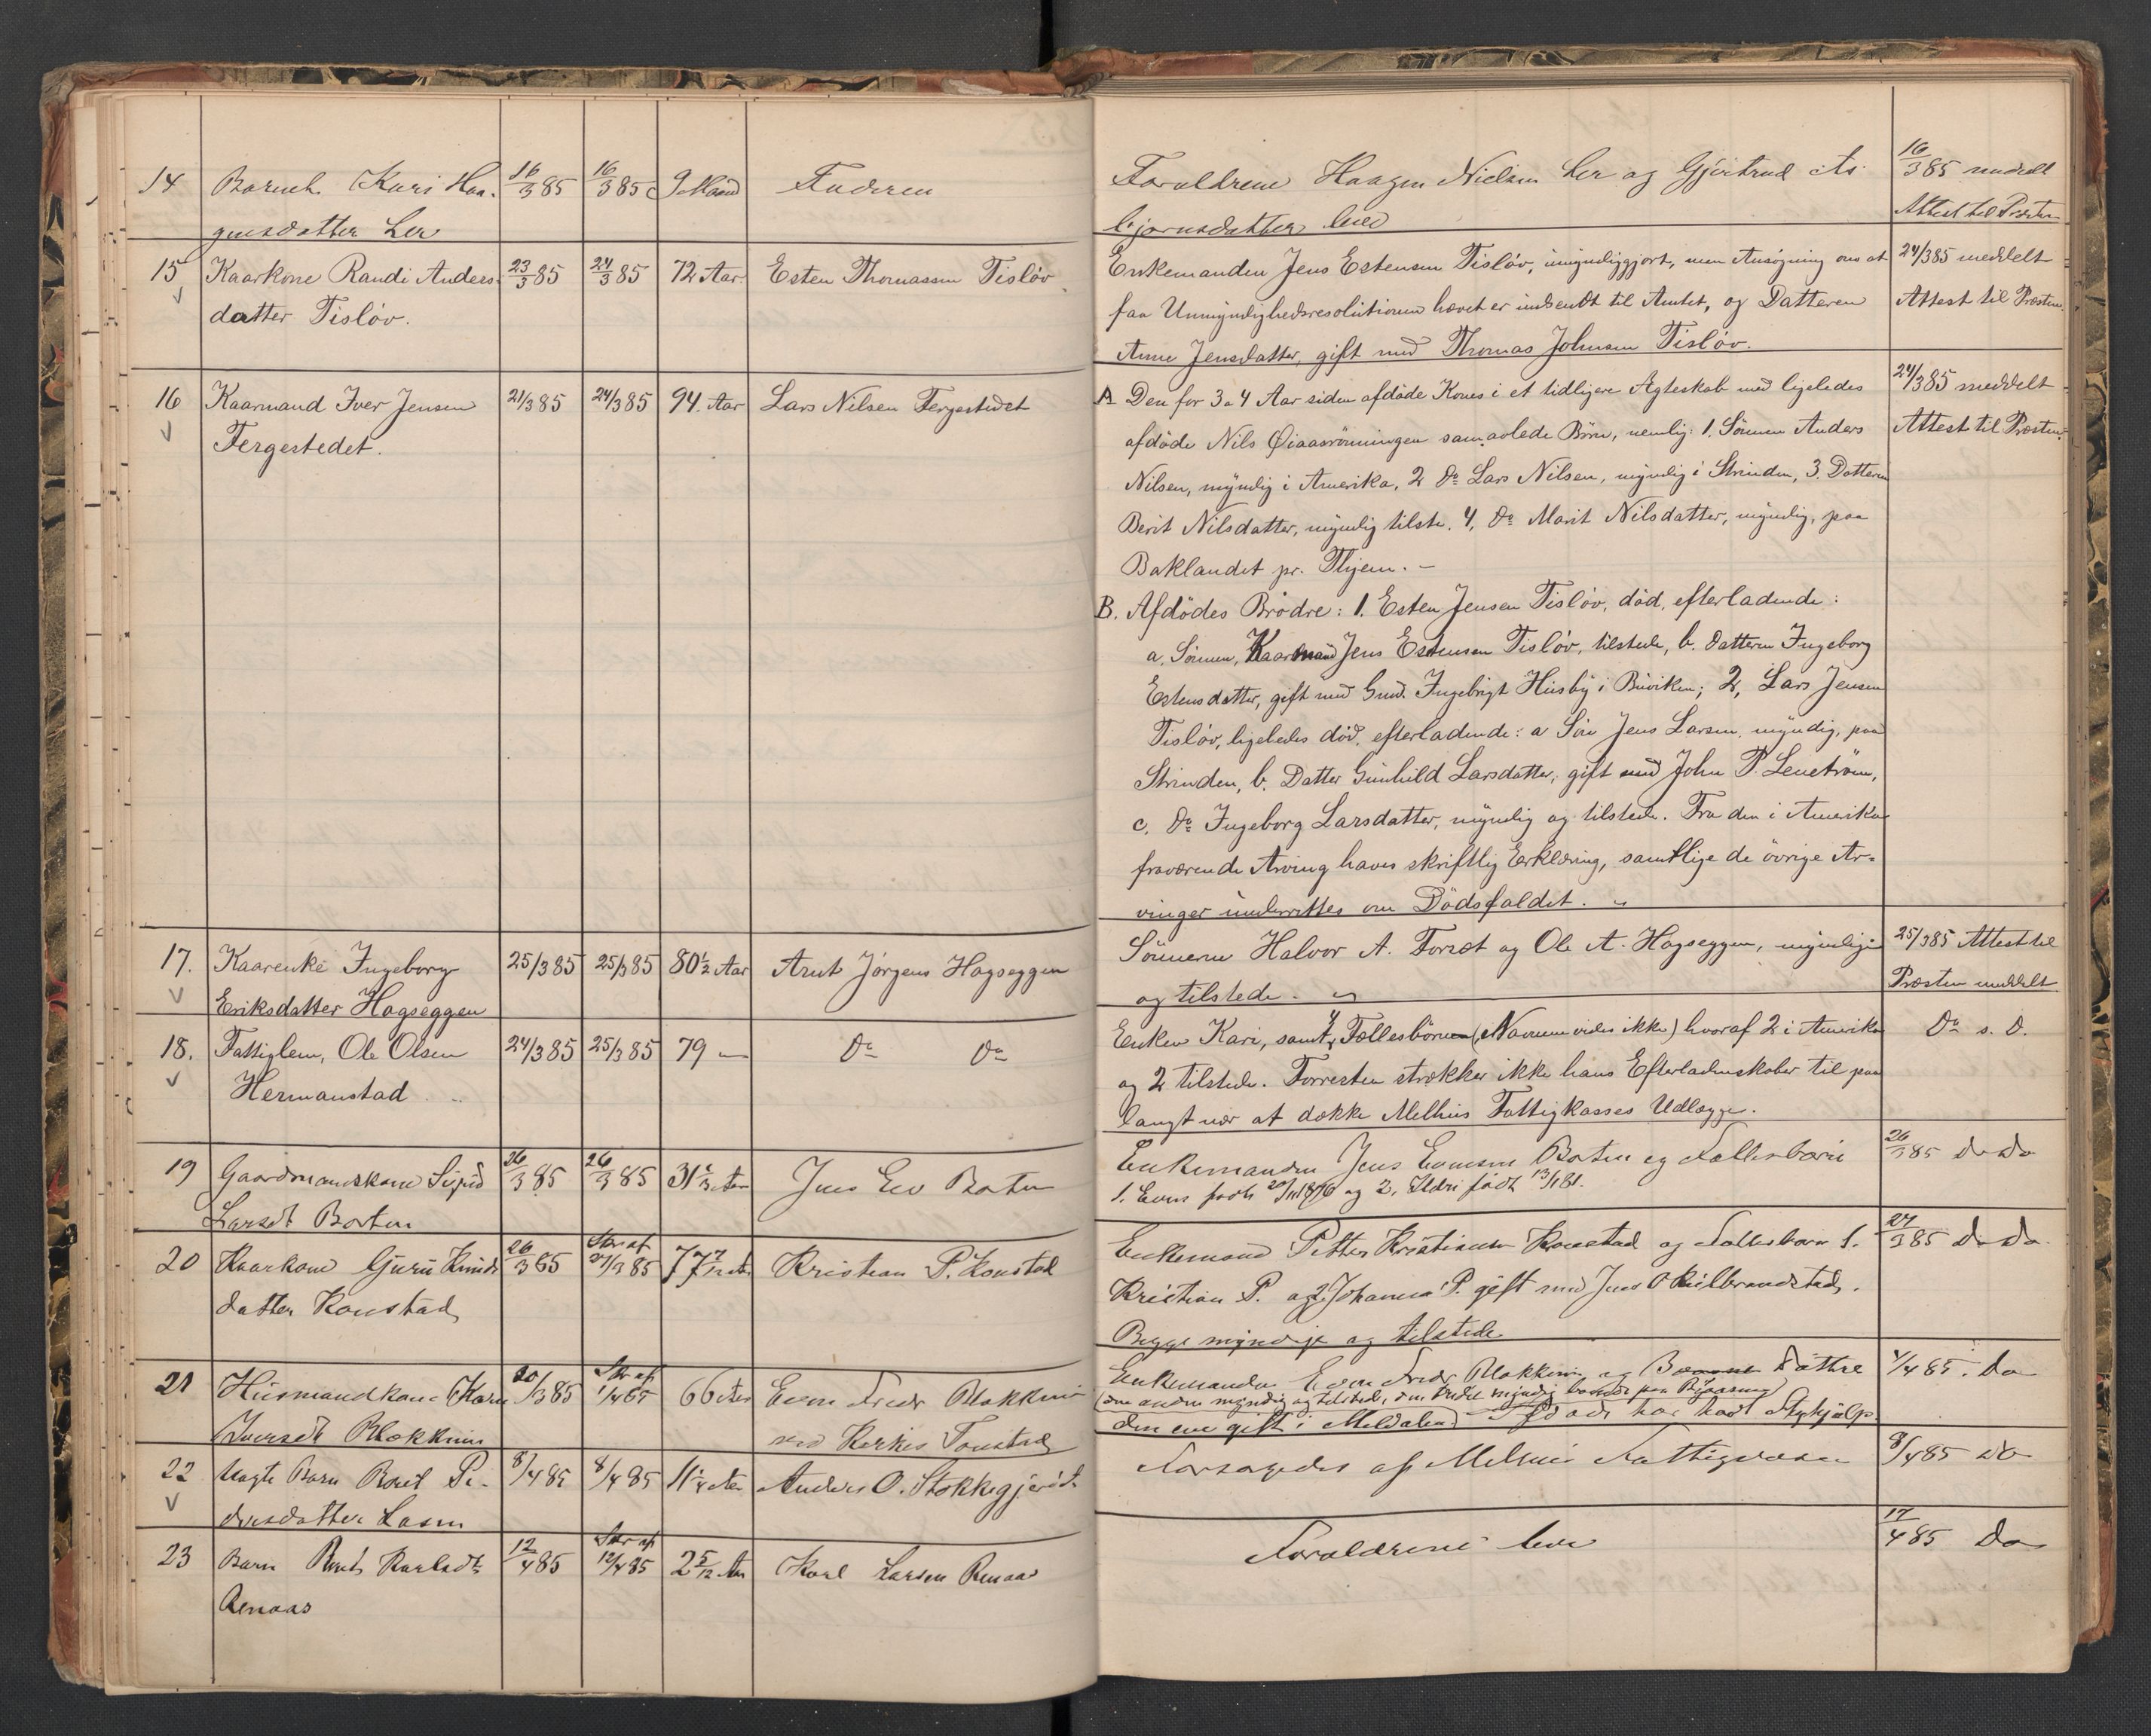 14 Barneh. Kari Haa- 16/3 85 16/3 85 9 Maand Faderen
gensdatter Ler
15 Kaarkone Randi Anders- 23/3 85 24/3 85 72 Aar. Esten Thomassen Tisløv
datter Tisløv.
16 Kaarmand Iver Jensen 21/3 85 24/3 85 94. Aar Lars Nilsen Fergestedet
Fergestedet.
17. Kaarenke Ingeborg 25/3 85 25/3 85 80 1/2 Aar Arnt Jørgens Hagseggen
Eriksdatter Hagseggen
18. Fattiglem, Ole Olsen 24/3 85 25/3 85 79 — Do Do
Hermanstad
19 Gaardmandskone Sigrid 26/3 85 26/3 85 31 Aar Jens Ev Borten
Larsdt Borten
20 Kaarkone Guru Knuds 26/3 85 Skr af 27/3 85 77 7/12 Aar Kristian P. Konstad
datter Konstad
21 Husmandkone Karen 30/3 85 Skr af 1/4 85 66 Aar Even Fredr Blokkum
Iversdt Blokkum ved Kerkis Tonstad
22 Uægte Barn Berit Pe- 8/4 85 8/4 85 11 1/4 Aar Anders O. Stokkegjerdet
dersdatter Losen
23 Barn Karlsdt 12/4 85 Skr af 12/4 85 2 5/12 Aar Karl Larsen Renaas
Renaas
Forældrene Haagen Nielsen Ler og Gjertrud As- 16/3 85 meddelt
bjørnsdatter leve Attest til Præsten
Enkemanden Jens Estensen Tisløv, umyndiggjort, men Ansøgning om at 24/3 85 meddelt
faa Unmyndighedsresolutionen hævet er indsendt til Amtet, og Datteren Attest til Præsten.
Anne Jensdatter, gift med Thomas Johnsen Tisløv.
A Den for 3 a 4 Aar siden afdøde Kones i et tidligere Ægteskab med ligeledes 24/3 85 meddelt
afdøde Nils Øiaasrønningen samavlede Børn, nemlig: 1. Sønnen Anders Attest til Præsten.
Nilsen, myndig i Amerika, 2 Do Lars Nilsen, myndig i Strinden, 3. Datteren
Berit Nilsdatter, myndig tilste. 4, Do Marit Nilsdatter, myndig, paa
Baklandet pr. Thjem. —
B. Afdødes Brødre: 1. Esten Jensen Tisløv, død, efterladende:
a. Sønnen, Kaarmand Jens Estensen Tisløv, tilstede, b. Datteren Ingeborg
Estensdatter, gift med Gmd. Ingebrigt Husby i Buviken; 2, Lars Jensen
Tisløv, ligeledes død, efterladende: a Søn Jens Larsen, myndig, paa
Strinden, b. Datter Gunhild Larsdatter, gift med John P. Lenstrøm,
c. Do Ingeborg Larsdatter, myndig og tilstede. Fra den i Amerika
fraværende Arving haves skriftlig Erklæring, samtlige de øvrige Ar-
vinger underrettes om Dødsfaldet.
Sønnerne Halvor A. Forsæt og Ole A. Hagseggen, myndige 25/3 85 Attest til
og tilstede. Præsten meddelt
Enken Kari, samt 4 Fællesbørn (Navnene vides ikke) hvoraf 2 i Amerika Do s. D.
og 2 tilstede. Forresten strækker ikke hans Efterladenskaber til paa
langt nær at dække Melhus Fattigkasses Udlægge.
Enkemanden Jens Evensen Borten og Fællesbørn 26/3 85 do do
1. Even født 20/11 1876 og 2, Ildri født 13/1 81.
Enkemand Petter Kristiansen Konstad og Fællesbørn 1. 27/3 85 do do
Kristian P. og 2 Johanna P. gift med Jens O Kulbrandstad.
Begge myndige og tilstede
Enkemanden Even Fredr Blokkum og Børnene Døttre 1/4 85. do
(den anden myndig og tilstede, den tredie myndig boende paa Byaasen)
den ene gift i Meldalen) Afdøde har havt Skyhjælp
Forsørgedes af Melhus Fattigvæsen 8/4 85 do
Forældrene leve 17/4 85 do